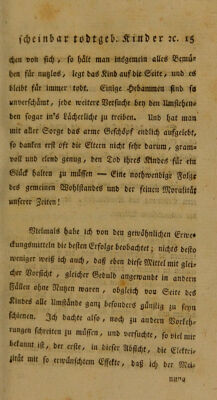 scheinbar todtgeb. Kinder ꝛc. 15
chen von sich, so hält man insgemein alles Bemü-
hen für nutzlos, legt das Kind auf die Seite, und es
bleibt für immer todt. Einige Hebammen sind so
unverschämt, jede weitere Versuche bey den Umstehen-
den sogar in's Lächerliche zu treiben. Und hat man
mit aller Sorge das arme Geschöpf endlich aufgelebt,
so danken erst oft die Eltern nicht sehr darum, gram-
voll und elend genug, den Tod ihres Kindes für ein
Glück halten zu müssen — Eine nothwendige Folge
des gemeinen Wohlstandes und der feinen Moralität
unserer Zeiten!
Vielmals habe ich von den gewöhnlichen Erwe-
ckungsmitteln die besten Erfolge beobachtet; nichts desto
weniger weiß ich auch, daß eben diese Mittel mit glei-
cher Vorsicht, gleicher Geduld angewandt in andern
Fällen ohne Nutzen waren, obgleich von Seite des
Kindes alle Umstände ganz besonders günstig zu seyn
schienen. Ich dachte also, noch zu andern Vorkeh-
rungen schreiten zu müssen, und versuchte, so viel mir
bekannt ist, der erste, in dieser Absicht, die Elektri-
zität mit so erwünschtem Effekte, daß ich der Mei-
nung